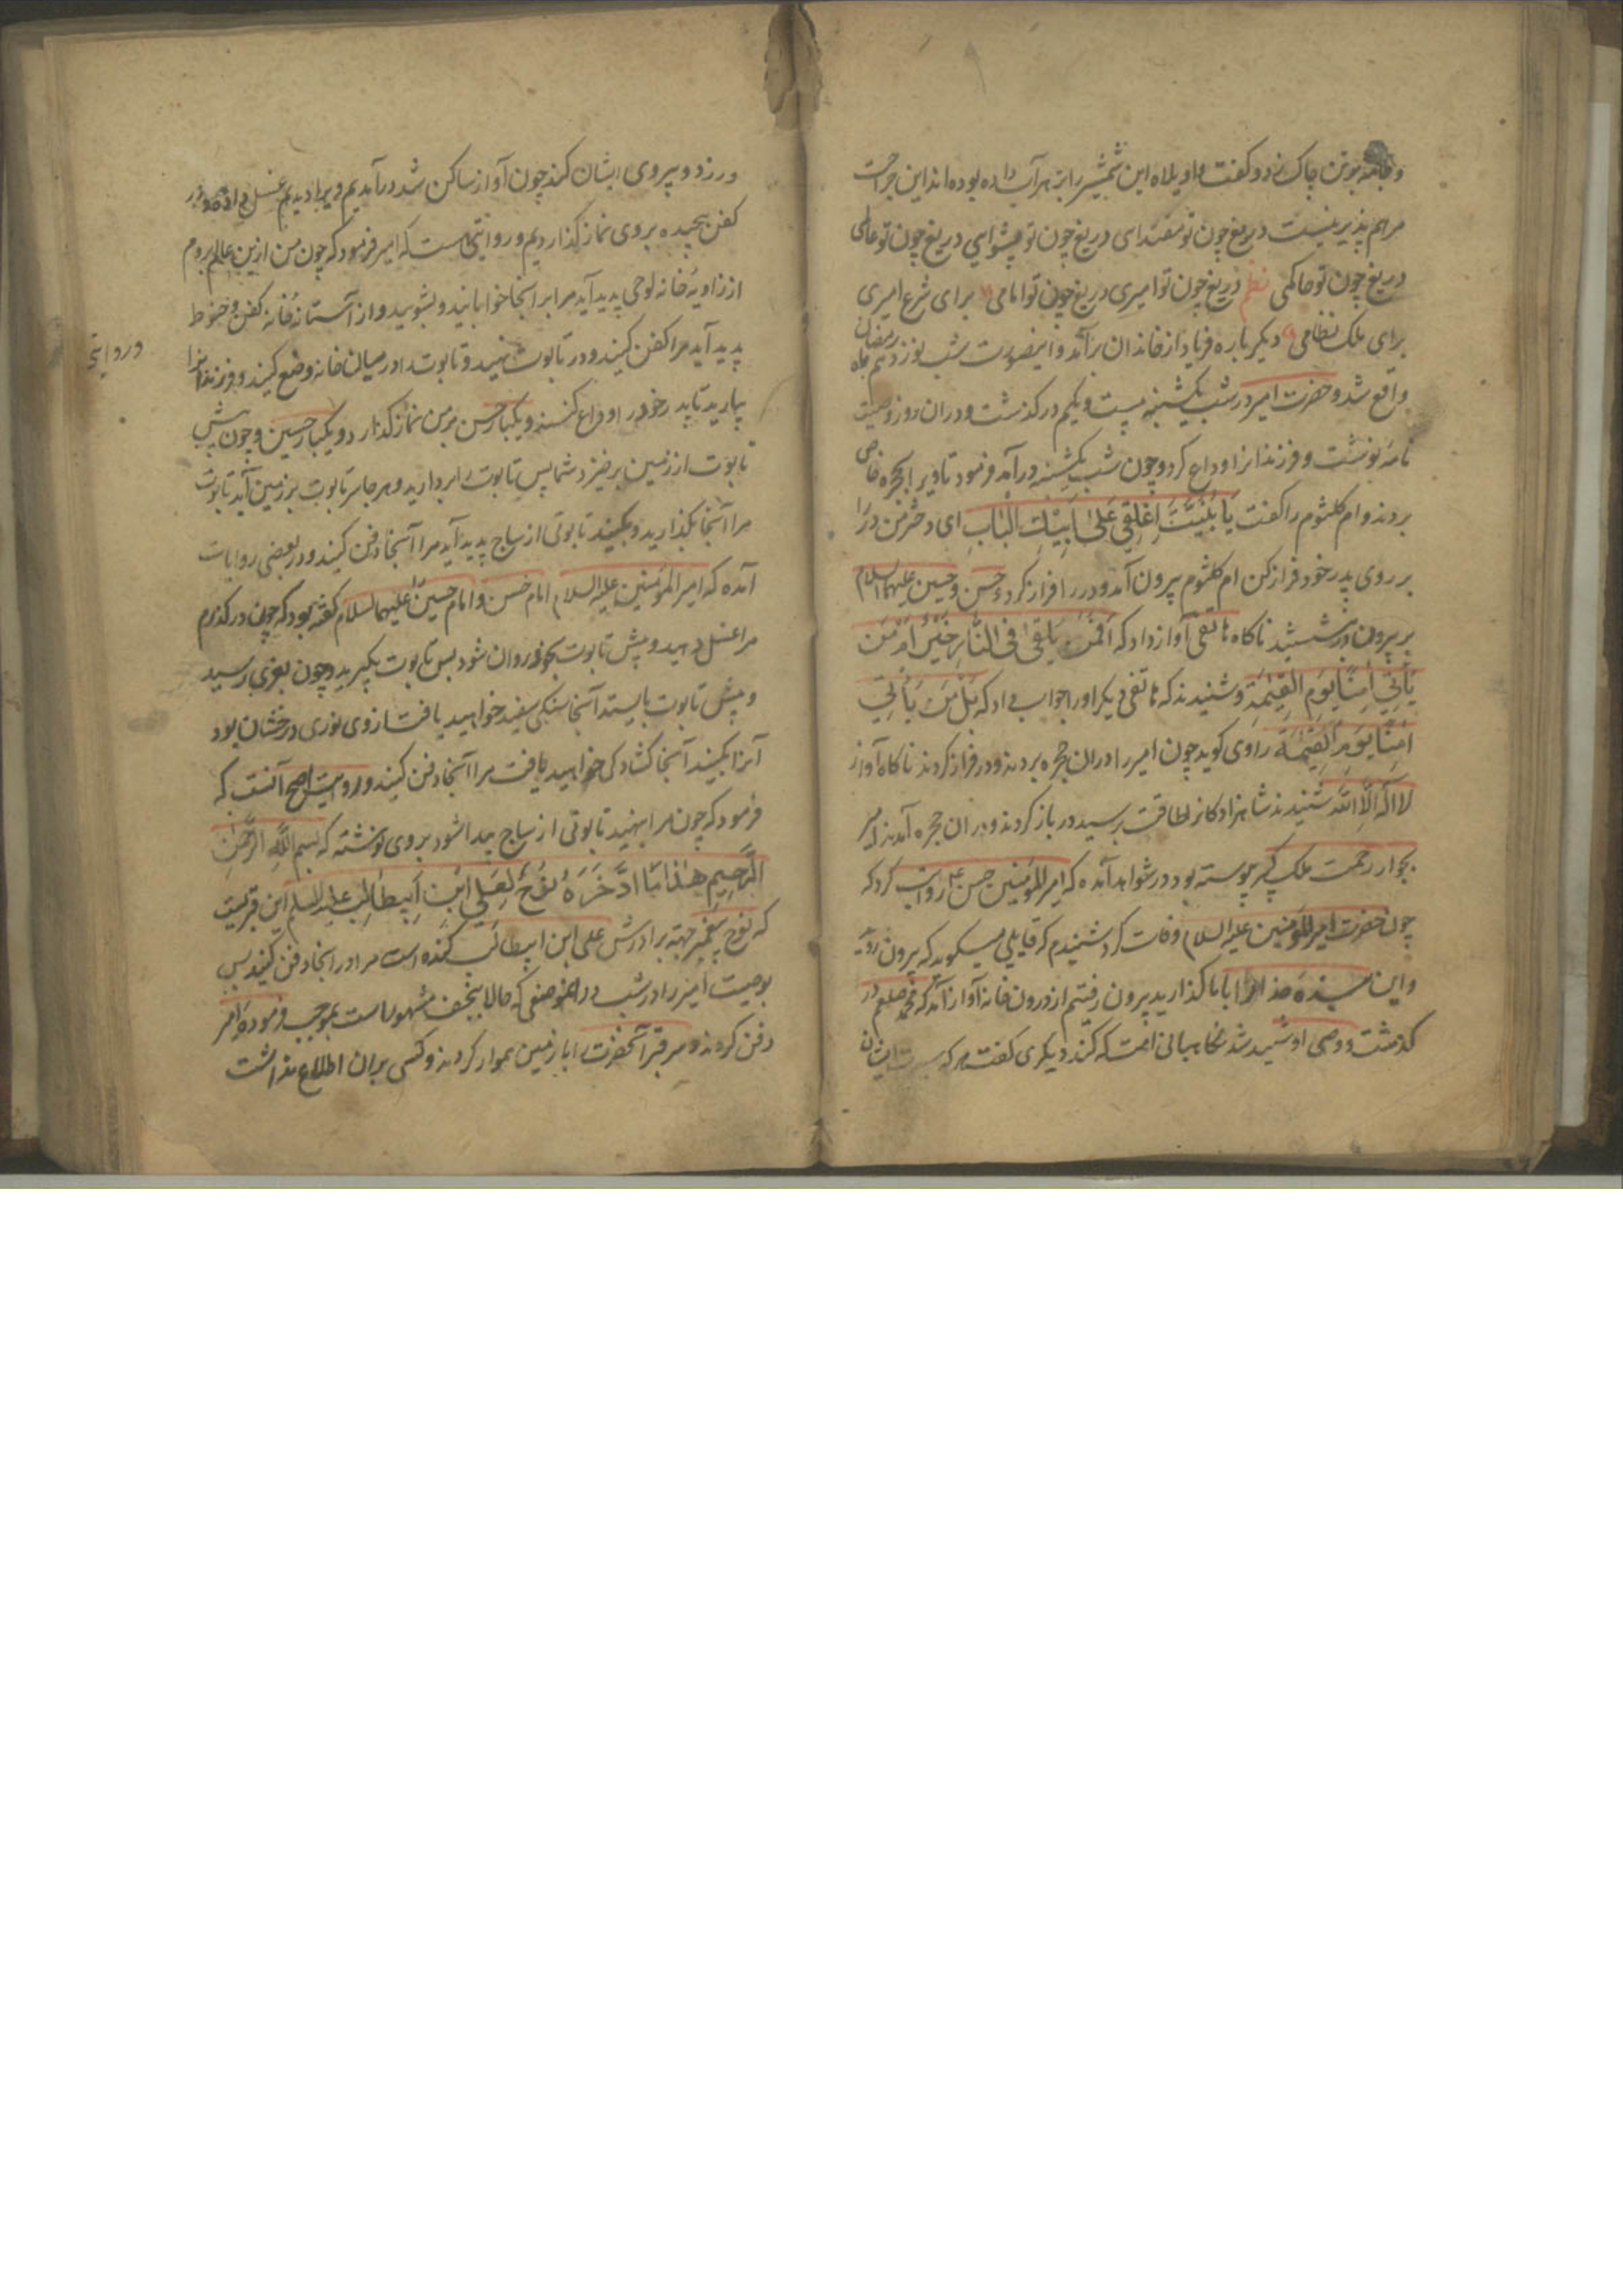 و جامه بر تن چاک زد و گفت واویلاه این شمشیر را بزهر آب داده بوده اند این جراحت
مرهم پذیر نیست دریغ چون تو مقتدای دریغ چون تو پیشوایی دریغ چون تو عالمی
دریغ چون تو حاکمی نظم دریغ چون تو امیری دریغ چون تو امامی برای شرع امیری
برای ملک نظامی دیگر باره فریاد از خاندان برآمد و اینصورت شب نوزدهم ماه رمضان
واقع شد و حضرت امیر در شب یکشنبه بیست و یکم درگذشت و در آن روز وصیت
نامه نوشت و فرزندانرا وداع کرد و چون شب یکشنبه درآمد فرمود تا ویرا بحجره خاص
بردند و ام کلثوم را گفت یَا بُنَیَّتَ اِغْلِقِی عَلیٰ اَبِیْكِ الْبَابِ ای دختر من در را
بر روی پدر خود فراز کن ام کلثوم بیرون آمد و در را فراز کرد حسن و حسین علیهما السلام
بر بیرون در نشستند ناگاه هاتفی آواز داد که اَفَمَنْ یُلْقیٰ فِی النَّارِ خَیْرٌ اَمْ مَن
یَأْتِیْ اٰمِنًا یَوْمَ الْقِیٰمَةِ و شنیدند که هاتفی دیگر او را جواب داد که بَلْ مَن یَأْتِیْ
اٰمِنًا یَوْمَ الْقِیٰمَةِ راوی گوید چون امیر را در آن حجره بردند و در فراز کردند ناگاه آواز
لا اله الا الله شنیدند شاهزادگانرا طاقت برسید در باز کردند و در آن حجره آمدند امیر
بجوار رحمت ملک کبیر پیوسته بود در شواهد آمده که امیر المؤمنین حسن روایت کرد که
چون حضرت امیر المؤمنین علیه السلام وفات کرد شنیدم که قایلی میگوید که بیرون روید
و این بنده خدا را با ما گذارید بیرون رفتیم از درون خانه آواز آمد که محمد صلعم در
گذشت و وصی او شهید شد نگاهبانی امت که کند دیگری گفت هر که سیرت ایشان
ورزد و پیروی ایشان کند چون آواز ساکن شد درآمدیم ویرا دیدیم غسل داده و در
کفن پیچیده بر وی نماز گذاردیم و روایتی هست که امیر فرمود که چون من ازین عالم بروم
از زاویه خانه لوحی پدید آید مرا بر آنجا خوابانید و بشویید و از آستانه خانه کفن و حنوط
پدید آید مرا کفن کنید و در تابوت نهید و تابوت را در میان خانه وضع کنید و فرزندانرا
بیارید تا پدر خود را وداع کنند و یکبار حسن بر من نماز گذارد و یکبار حسین و چون پیش
تابوت از زمین برخیزد شما پس تابوت را بردارید و هر جا سر تابوت بر زمین آید تابوت
مرا آنجا بگذارید و بکنید تابوتی از ساج پدید آید مرا آنجا دفن کنید و در بعضی روایات
آمده که امیر المؤمنین علیه السلام امام حسن و امام حسین علیهما السلام گفته بود که چون درگذرم
مرا غسل دهید و پیش تابوت خود روان شود پس تابوت بگیرید و چون بغری رسید
و پیش تابوت بایستد آنجا سنگی سفید خواهید یافت از وی نوری درخشان بود
آنرا بکنید آنجا گشادگی خواهید یافت مرا آنجا دفن کنید و روایت اصح آنست که
فرمود که چون مرا بنهید تابوتی از ساج پیدا شود بر وی نوشته که بسم الله الرَّحْمٰنِ
الرَّحِیْمِ هٰذَا مَا ادَّخَرَهُ نُوْحٌ لِعَلِیِّ ابْنِ اَبِیطَالِبِ علیه السلام این قبریست
که نوح پیغمبر جهته برادرش علی ابن ابیطالب کنده است مرا در آنجا دفن کنید پس
بوصیت امیر را در شب در آن موضعی که حالا بنجف مشهور است بموجب فرموده امیر
دفن کردند و سر قبر آنحضرت را با زمین هموار کردند و کسی بران اطلاع نداشت
و روایتی